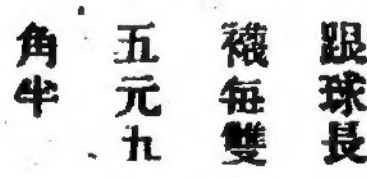 跟球長
襪每雙
五元九
角半